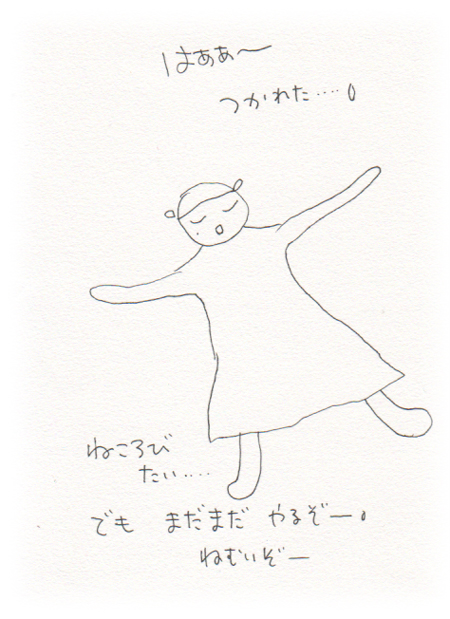 はぁぁ〜
つかれた……。
ねころび
たい……
でも まだまだ やるぞー。
ねむいぞー